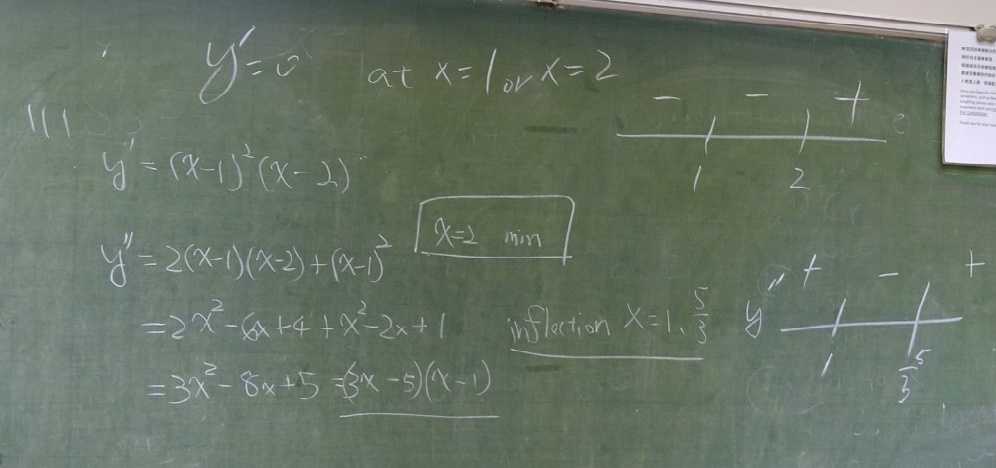 y'=0 at x=1 or x=2
- - +
1 2
111
y' = (x-1)²(x-2)
x=2 min
y'' = 2(x-1)(x-2)+(x-1)²
y'' + - +
1 5/3
=2x²-6x+4+x²-2x+1
inflection x=1, 5/3
=3x²-8x+5 =(3x-5)(x-1)